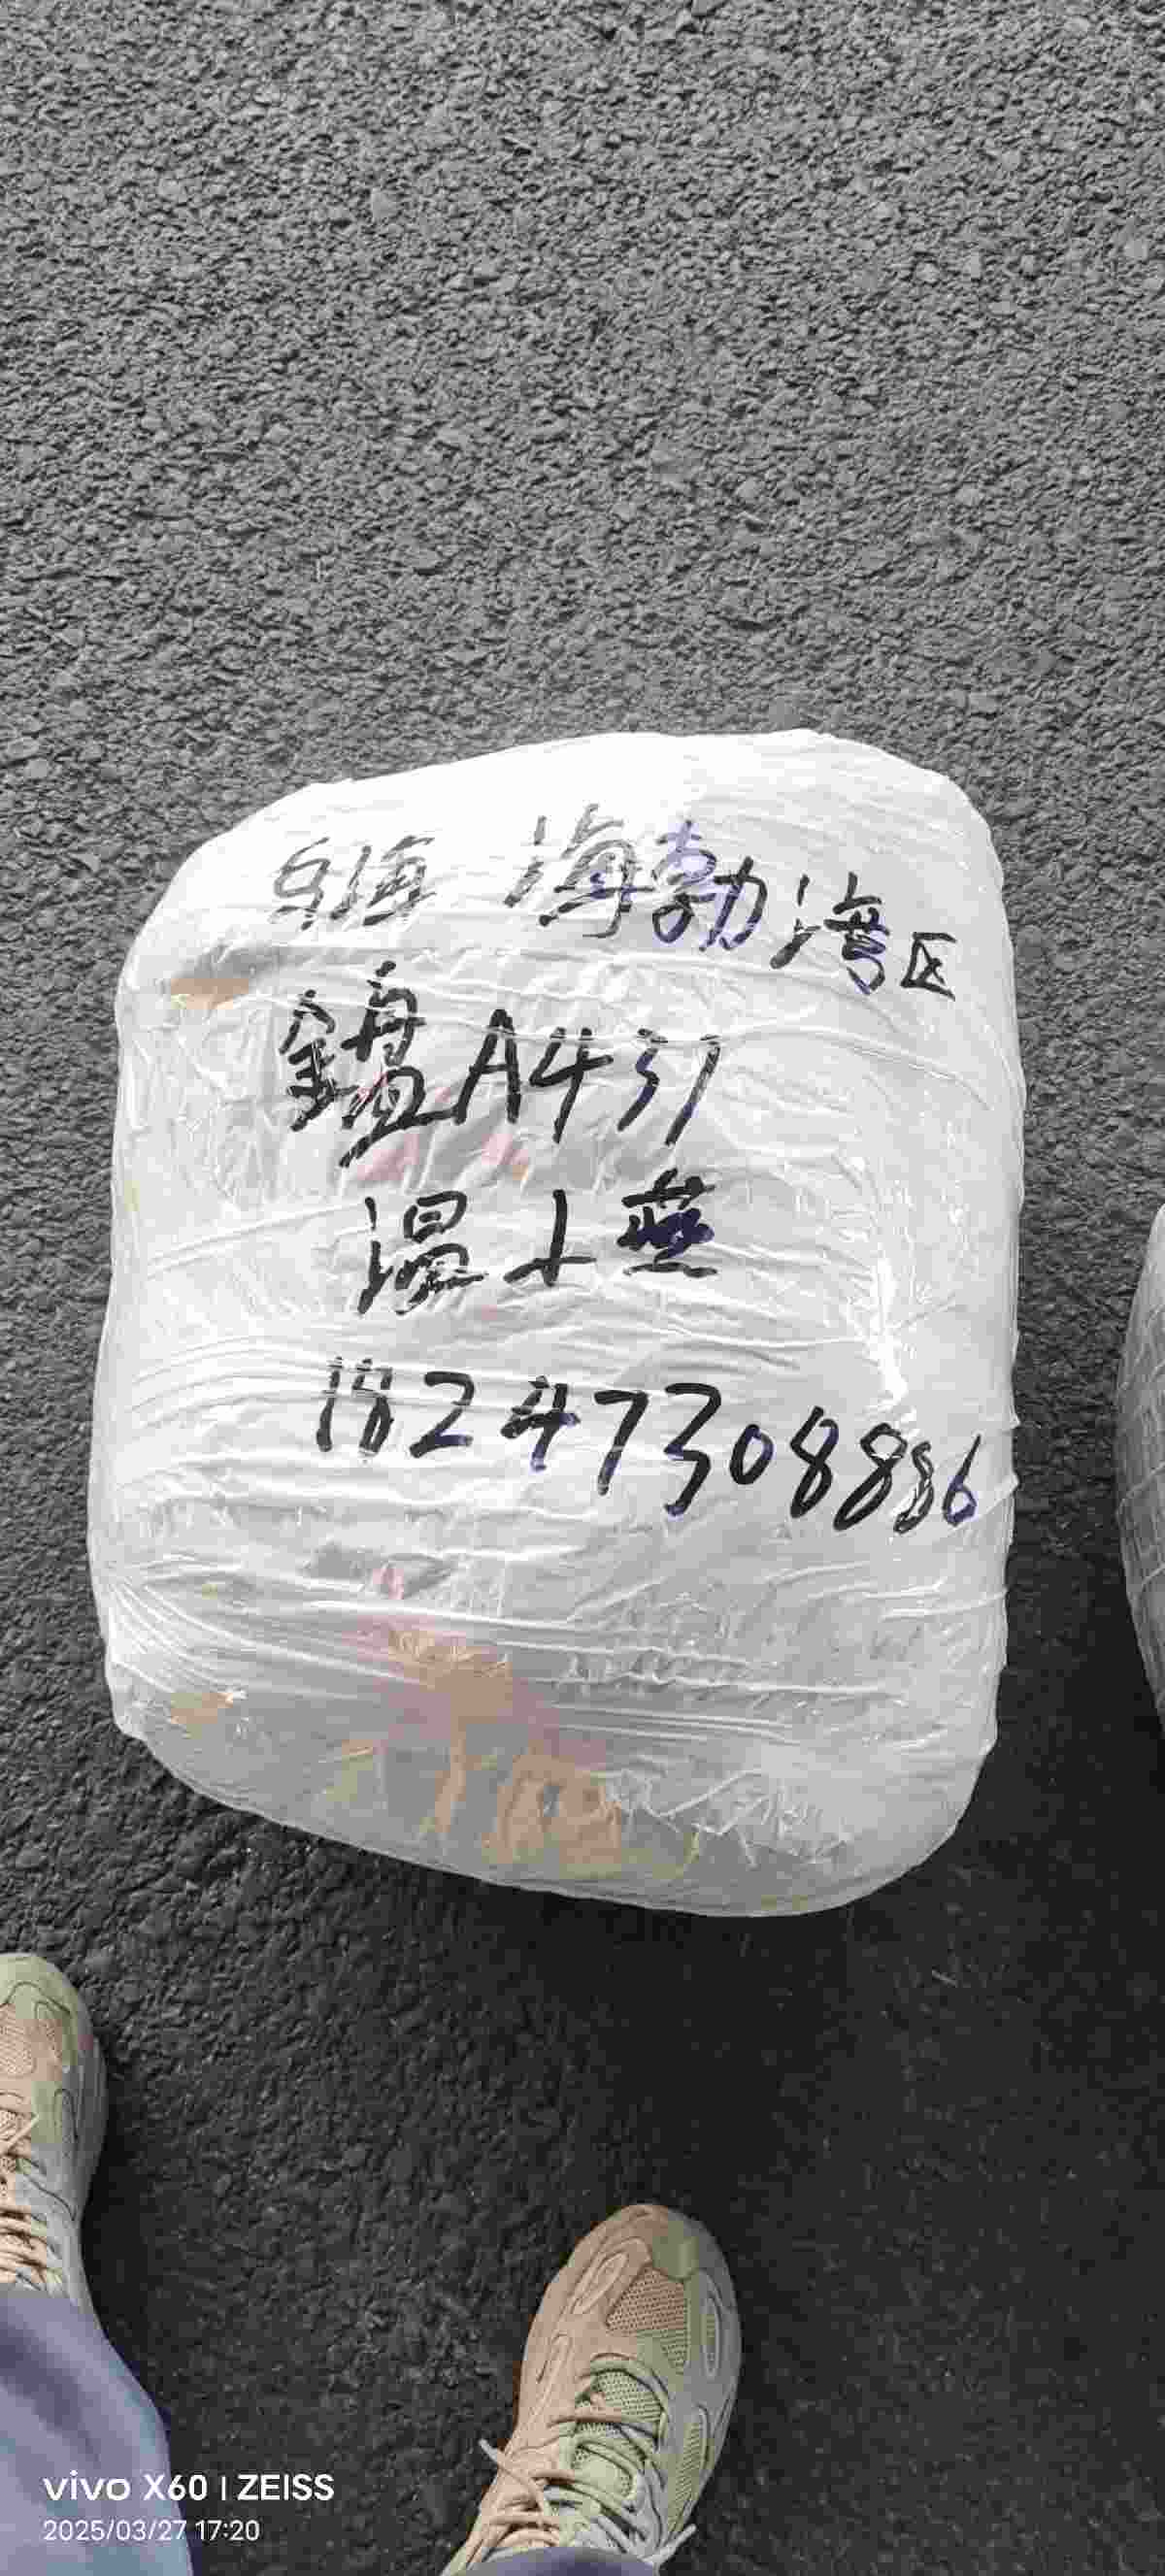 乌海 海勃湾区
鑫A431
温小燕
18247308886
vivo X60 | ZEISS
2025/03/27 17:20